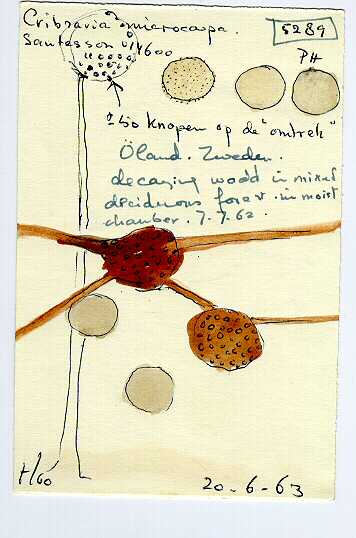 Cribraria microcarpa.
5289
Santesson 1/1600
PH
± 50 knopen op de "omtrek"
Öland. Zweden.
decaying wood in mixed
deciduous forest. in moist
chamber. 7.7.62.
20-6-63